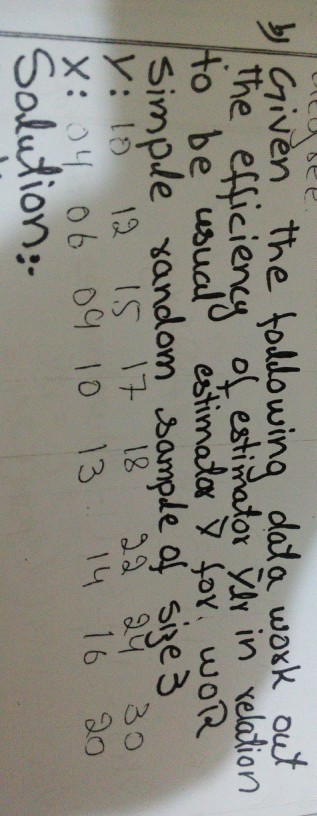 b) Given the following data work out
the efficiency of estimator ȳlr in relation
to be usual estimator ȳ for WOR
Simple random sample of size 3
Y: 10 12 15 17 18 22 24 30
X: 04 06 09 10 13 14 16 20
Salution:-